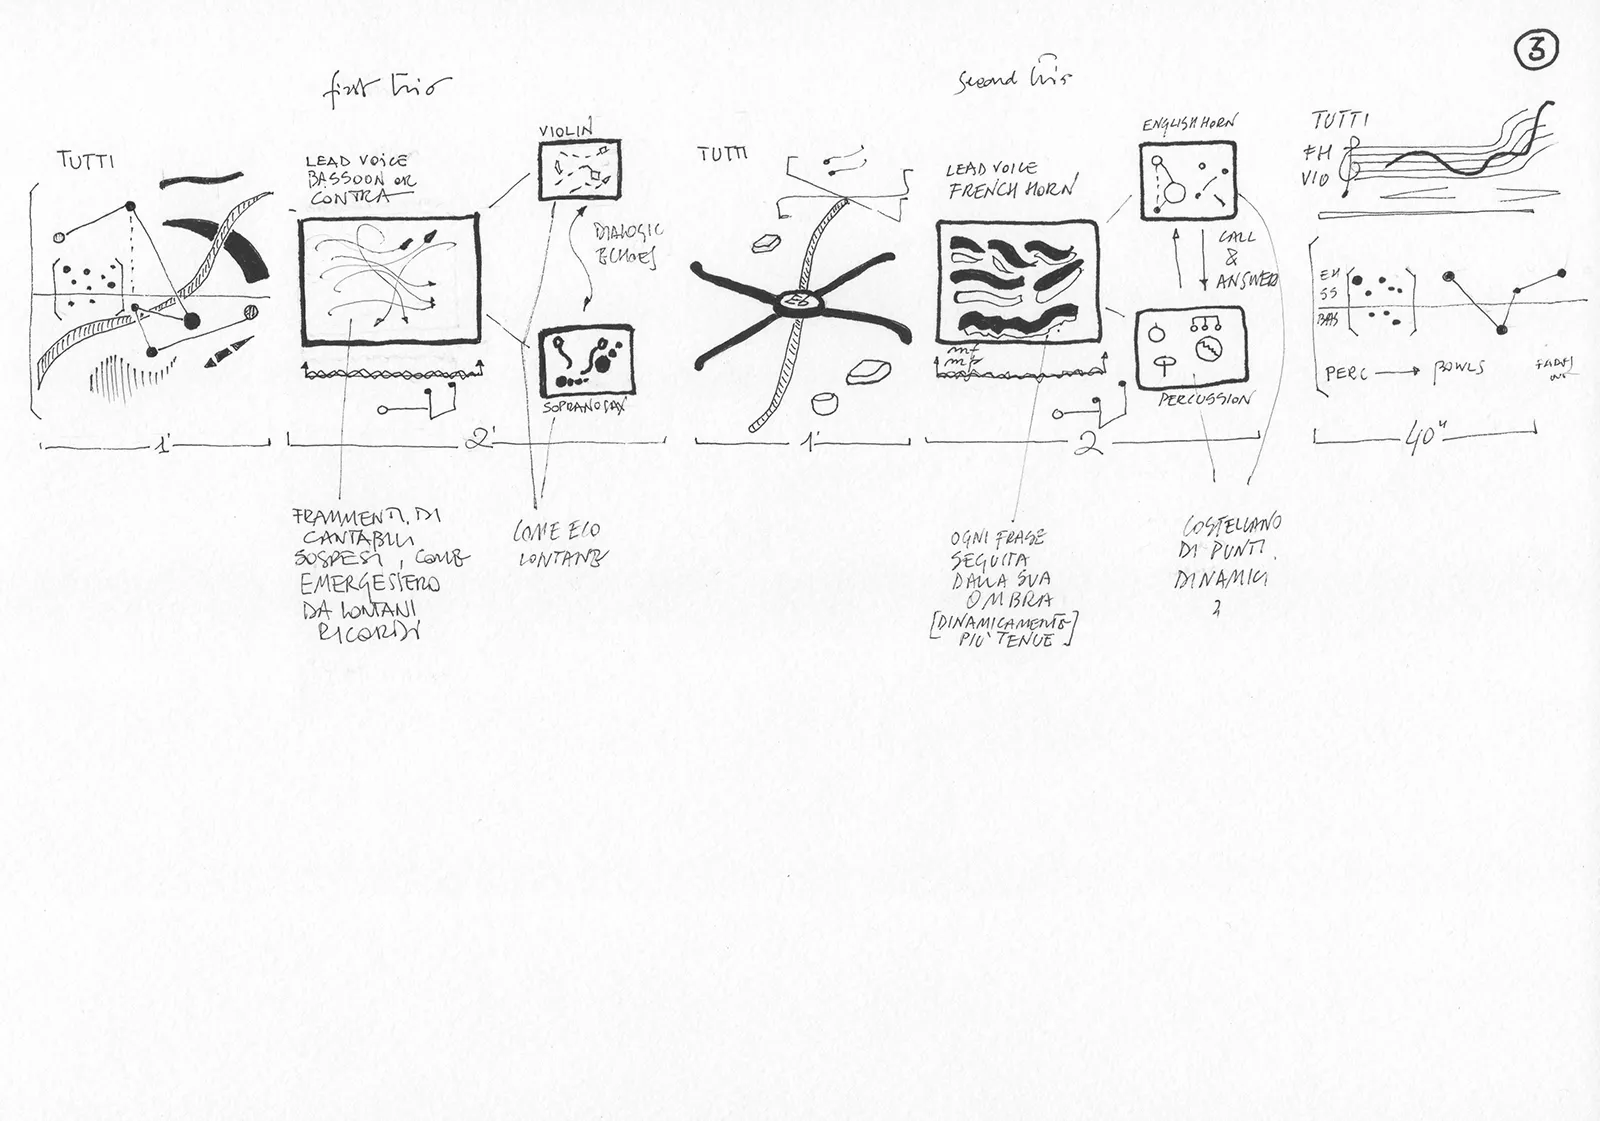 3
first trio
second trio
TUTTI
LEAD VOICE
BASSOON OR
CONTRA
VIOLIN
DIALOGIC
ECHOES
SOPRANO SAX
1'
2'
FRAMMENTI DI
CANTABILI
SOSPESI, COME
EMERGESSERO
DA LONTANI
RICORDI
COME ECO
LONTANE
TUTTI
1'
LEAD VOICE
FRENCH HORN
mf
mp
ENGLISH HORN
CALL
&
ANSWER
PERCUSSION
2
OGNI FRASE
SEGUITA
DALLA SUA
OMBRA
[DINAMICAMENTE
PIÙ TENUE]
COSTELLANO
DI PUNTI
DINAMICI
TUTTI
FH
VIO
EH
SS
BAS
PERC → BOWLS
40"